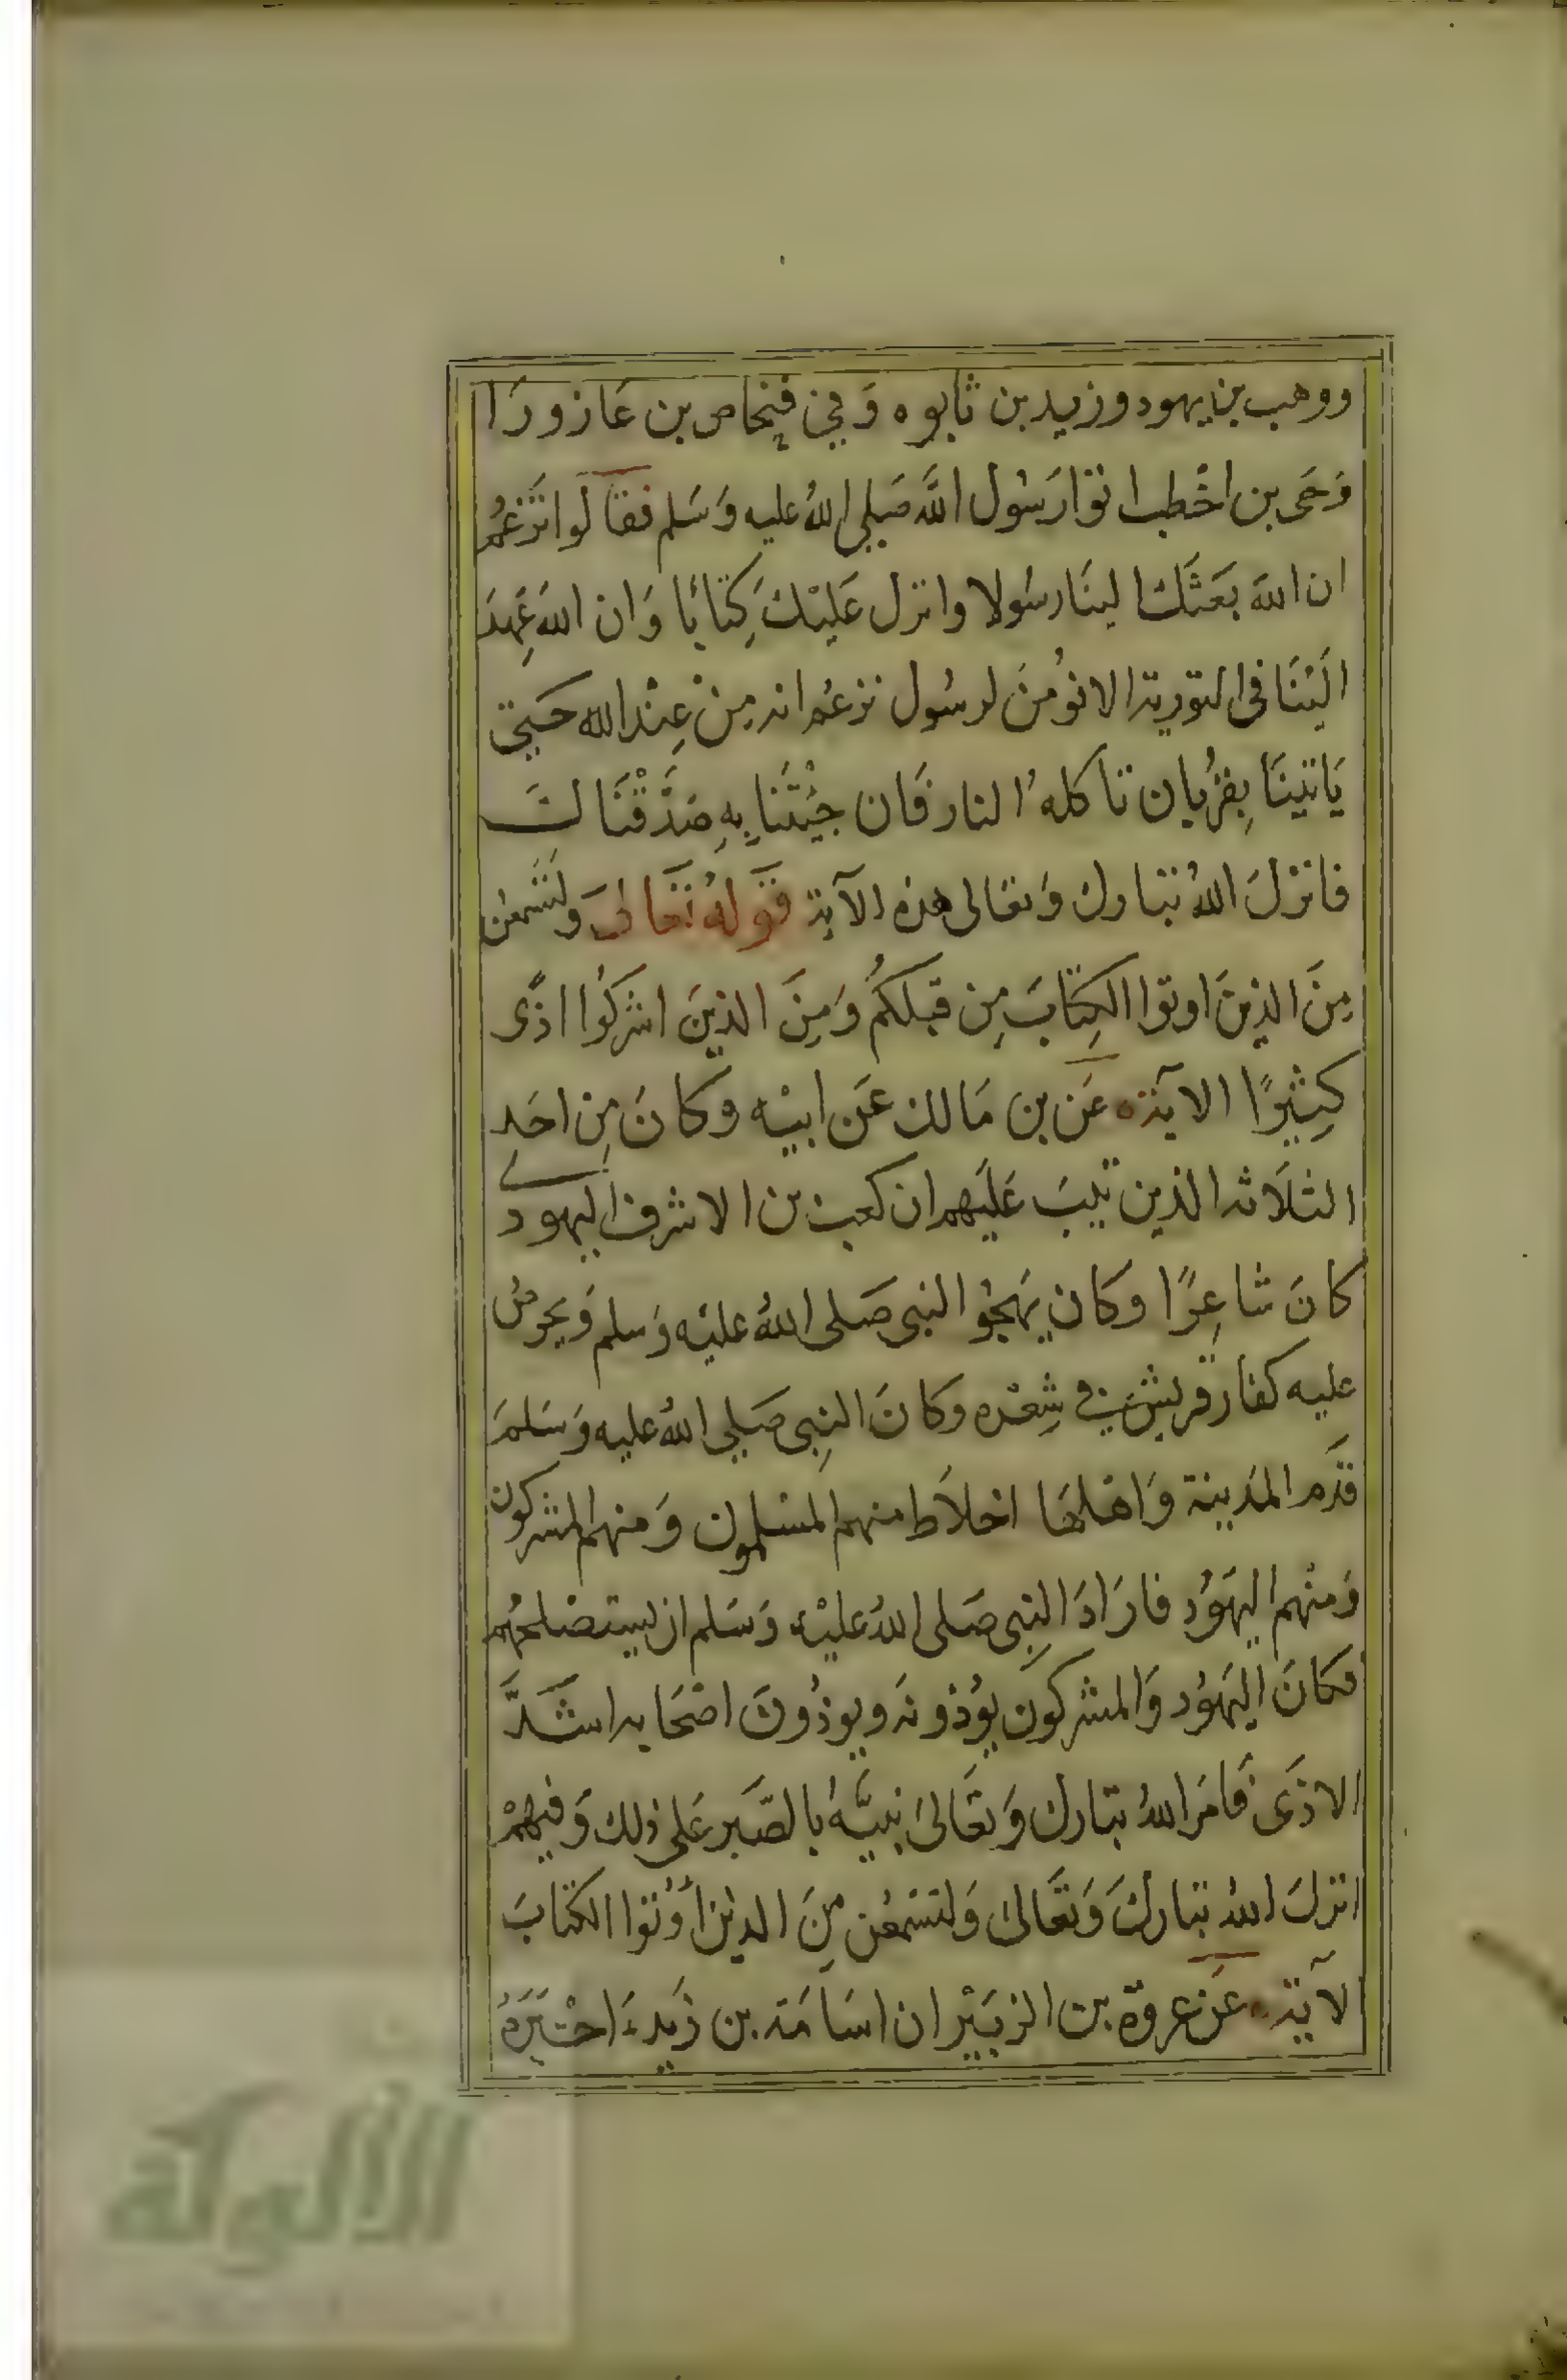 ووهب بن يهود وزيد بن تابوه وَفي فِنحاص بن عَازورَا
وَحَى بن اخْطب اتوا رَسُول اللَّه صَلى اللهُ عليه وَسَلم فقالوا تَزعُم
ان اللهَ بَعَثَكَ الينَا رسُولا وانزل عَليْكَ كِتابًا وَان اللهَ عَهِدَ
اليْنَا فى التورية الا نؤُمنَ لرسُول نزعُم انه مِنْ عِنْد الله حَتى
يَاتينَا بِقُربان تاكلهُ النار فَان جِئتَنَا بِهِ صَدَّقْنَاكَ
فانزلَ اللهُ تبارك وَتعَالى هذه الآية قَولهُ تعَالىَ وَلتَسْمَعُن
مِنَ الذِينَ اوتوا الكِتابَ مِن قبلكُم وَمِنَ الذينَ اشركُوا اذًى
كثِيرًا الآية عَن بن مَالك عَن ابيْه وكانَ مِن احَدِ
الثلَاثه الذين تيبَ عَليَهم ان كعب بن الاشرف اليهودي
كانَ شاعِرًا وكان يَهجُوا النبى صَلى اللهُ عليْه وَسلم وَيحرضُ
عليه كفار قريش في شِعْره وكانَ النبِى صَلى اللهُ عليه وَسَلمَ
قدَم المَدينة وَاهْلهَا اخلاَط منهم المسْلمون وَمنهم المشركون
وَمنْهم اليهَوُد فارَادَ النبِى صَلى اللهُ عليْه وَسَلم ان يستصْلحُهم
فكانَ اليَهوُد وَالمشركونَ يوُذونهَ ويوذُونَ اصْحَابه اشَدَّ
الاذَى فَامَرَ اللهُ تبَارك وَتعَالىَ نبيَّهُ بالصَّبر عَلى ذلك وَفيهمْ
انزلَ اللهُ تبَاركَ وَتَعَالىَ وَلتسْمعُن مِنَ الذينَ أُوُتوا الكتابَ
لآية عَن عروة بن الزبيَْر ان اسَامَة بن زَيد اخْبَرَهُ
الألوكة